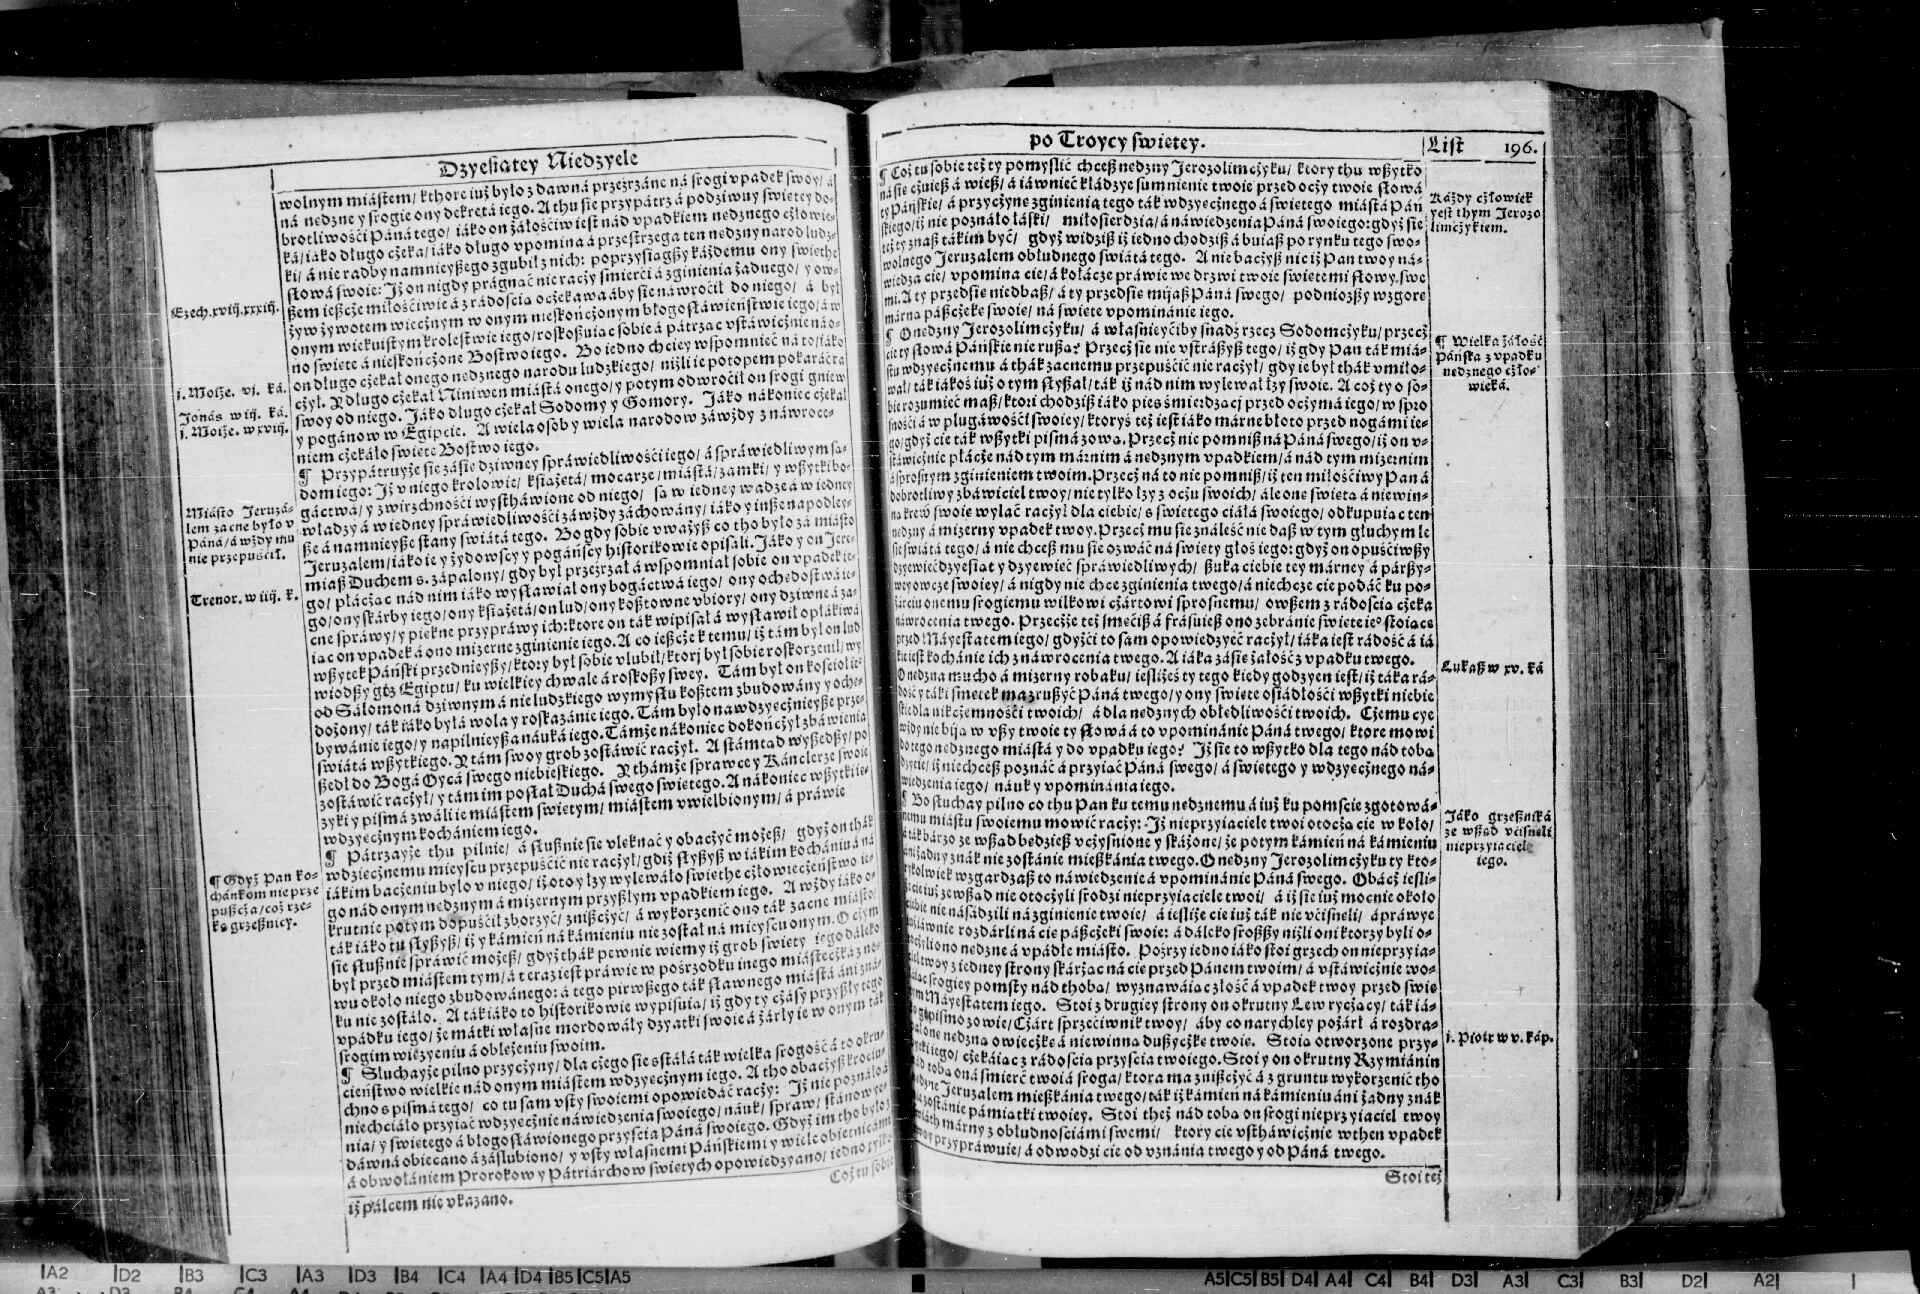 Dzyesiatey Niedzyele
wolnym miástem/ kthore iuż było z dawná przeźrzáne ná srogi vpadek swoy/ á
ná nedzne y srogie ony dekretá iego. A thu sie przypátrz á podziwuy swietey do-
brotliwośći Páná tego/ iáko on żáłośćiw iest nád vpadkiem nedznego cżłowie-
ká/ iáko długo cżeka/ iáko długo vpomina á przestrzega ten nedzny narod ludz-
ki/ á nie radby namnieyßego zgubił z nich: poprzysiągßy káżdemu ony swiethe
słowá swoie: Jż on nigdy prágnąć nie racży śmierći á zginienia żadnego/ y ow-
ßem ießcże miłośćiwie á z rádośćią ocżekawa áby sie náwroćił do niego/ á był
żyw żywotem wiecżnym w onym nieskończonym błogosłáwieństwie iego/ á w
onym wiekuistym krolestwie iego/ roskoßuiąc sobie á pátrząc vstáwicżnie ná o-
no swiete á nieskończone Bostwo iego. Bo iedno chciey wspomnieć ná to/ iáko
on długo cżekał onego nedznego narodu ludzkiego/ niżli ie potopem pokaráć ra-
cżył. Y długo cżekał Niniwen miástá onego/ y potym odwroćił on srogi gniew
swoy od niego. Jáko długo cżekał Sodomy y Gomory. Jáko nákoniec cżekał
y pogánow w Egipcie. A wiela osob y wiela narodow záwżdy z náwroce-
niem cżekáło swiete Bostwo iego.
¶ Przypátruyże sie zásie dziwney spráwiedliwośći iego/ á spráwiedliwym są-
dom iego: Jż v niego krolowie/ książetá/ mocarze/ miástá/ zamki/ y wßytki bo-
gáctwá/ y zwirzchnośći wysthawione od niego/ są w iedney wadze á w iedney
władzy á w iedney spráwiedliwośći záwżdy záchowány/ iáko y inße napodley-
ße á namnieyße stany swiátá tego. Bo gdy sobie vważyß co tho było zá miásto
Jeruzalem/ iáko ie y żydowscy y pogáńscy historikowie opisali. Jáko y on Jere-
miaß Duchem s. zápalony/ gdy był przeźrzał á wspomniał sobie on vpadek ie-
go/ płácżąc nád nim iáko wystawiał ony bogáctwá iego/ ony ochedostwá ie-
go/ ony skárby iego/ ony książetá/ on lud/ ony koßtowne vbiory/ ony dziwne á zá-
cne spráwy/ y piekne przypráwy ich: ktore on ták wipisał á wystawił opłákiwá
iąc on vpadek á ono mizerne zginienie iego. A co ießcże k temu/ iż tám był on lud
wßytek Páński przednieyßy/ ktory był sobie vlubił/ ktorj był sobie roskorzenił/ wy
wiodßy gi z Egiptu/ ku wielkiey chwale á roskoßy swey. Tám był on kośćioł ie°
od Sálomoná dziwnym á nieludzkiego wymysłu koßtem zbudowány y oche-
dożony/ ták iáko byłá wola y roskazánie iego. Tám było nawdzyecżnieyße prze-
bywánie iego/ y napilnieyßa náuká iego. Támże nákoniec dokończył zbáwienia
swiátá wßytkiego. Y tám swoy grob zostáwić racżył. A stámtąd wyßedßy/ po
ßedł do Bogá Oycá swego niebieskiego. Y thámże sprawce y Kánclerze swoie
zostáwić racżył/ y tám im posłał Duchá swego swietego. A nákoniec wßytki ie-
zyki y pismá zwáli ie miástem swietym/ miástem vwielbionym/ á práwie
wdzyecżnym kochániem iego.
¶ Pátrzayże thu pilnie/ á słußnie sie vleknąć y obacżyć możeß/ gdyż on thák
wdziecżnemu mieyscu przepuśćić nie racżył/ gdiż słyßyß w iákim kochániu á ná
iákim bacżeniu było v niego/ iż oto y łzy wylewáło swiethe cżłowiecżeństwo ie-
go nád onym nedznym á mizernym przyßłym vpadkiem iego. A wżdy iáko o-
krutnie potym dopuśćił zborzyć/ znißcżyć/ á wykorzenić ono ták zacne miásto/
ták iáko tu słyßyß/ iż y kámień ná kámieniu nie został ná mieyscu onym. O cżym
sie słußnie spráwić możeß/ gdyż thák pewnie wiemy iż grob swiety iego dáleko
był przed miástem tym/ á teraz iest práwie w pośrzodku inego miástecżká z no-
wu około niego zbudowánego: á tego pirwßego ták sławnego miástá áni zná-
ku nie zostáło. A ták iáko to historikowie wypisuią/ iż gdy ty cżásy przyßły tego
vpadku iego/ że mátki własne mordowáły dzyatki swoie á żárły ie w onym ták
srogim wiezyeniu á obleżeniu swoim.
¶ Słuchayże pilno przycżyny/ dla cżego sie sstáłá ták wielka srogość á to okru-
cieństwo wielkie nád onym miástem wdzyecżnym iego. A tho obacżyß krociu-
chno s pismá tego/ co tu sam vsty swoiemi opowiedáć racży: Jż nie poznáło á
niechciáło przyiąć wdzyecżnie náwiedzenia swoiego/ náuk/ spraw/ stánowe-
nia/ y swietego á błogosłáwionego przyścia Páná swoiego. Gdyż im tho było z
dawná obiecano á záślubiono/ y vsty własnemi Páńskiemi y wiele obietnicámi
á obwołániem Prorokow y Pátriárchow swietych opowiedzyano/ iedno tylko
iż pálcem nie vkazano.
Coż tu sobie
Ezech. xviij. xxxiij.
i. Moiże. vj. ká.
Jonás w iij. ká.
i. Moiże. w xviij.
Miásto Jeruzá-
lem zacne było v
Páná/ á wżdy mu
nie przepuśćił.
Trenor. w iiij. k.
¶ Gdyż Pan ko-
chánkom nie prze
pußcża/ coż rze-
ką grzeßnicy.
po Troycy swietey.
List 196.
¶ Coż tu sobie też ty pomyślić chceß nedzny Jerozolimcżyku/ ktory thu wßytko
ná sie cżuieß á wieß/ á iáwnieć kłádzye sumnienie twoie przed ocży twoie słowá
ty Páńskie/ á przycżyne zginienia tego ták wdzyecżnego á swietego miástá Pań
skiego/ iż nie poznáło łáski/ miłosierdzia/ á náwiedzenia Páná swoiego: gdyż sie
też ty znaß tákim być/ gdyż widziß iż iedno chodziß á buiaß po rynku tego swo-
wolnego Jeruzalem obłudnego swiátá tego. A nie bacżyß nic iż Pan twoy ná-
wiedza cie/ vpomina cie/ á kołáce práwie we drzwi twoie swietemi słowy swe
mi. A ty przedsie niedbaß/ á ty przedsie mijaß Páná swego/ podniozßy wzgore
márną páßcżeke swoie/ ná swiete vpominánie iego.
¶ O nedzny Jerozolimcżyku/ á własnieyćiby snadź rzecz Sodomcżyku/ przecż
cie ty słowá Páńskie nie rußą? Przecż sie nie vstráßyß tego/ iż gdy Pan ták miá-
stu wdzyecżnemu á thák zacnemu przepuśćić nie racżył/ gdy ie był thák vmiło-
wał/ ták iákoś iuż o tym słyßał/ ták iż nád nim wylewał łzy swoie. A coż ty o so-
bie rozumieć maß/ ktori chodziß iáko pies śmierdzącj przed ocżymá iego/ w spro
snośći á w plugáwośći swoiey/ ktoryś też iest iáko márne błoto przed nogámi ie-
go/ gdyż cie ták wßytki pismá zową. Przecż nie pomniß ná Páná swego/ iż on v-
stáwicżnie płácże nád tym márnim á nedznym vpadkiem/ á nád tym mizernim
á sprosnym zginieniem twoim. Przecż ná to nie pomniß/ iż ten miłośćiwy Pan á
dobrotliwy zbáwiciel twoy/ nie tylko łzy z ocżu swoich/ ále one swietą á niewin-
ną krew swoie wyláć racżył dla ciebie/ s swietego ciáłá swoiego/ odkupuiąc ten
nedzny á mizerny vpadek twoy. Przecż mu sie ználeść nie daß w tym głuchym le
sie swiátá tego/ á nie chceß mu sie ozwáć ná swiety głos iego: gdyż on opuśćiwßy
dzyewiećdzyesiat y dzyewieć spráwiedliwych/ ßuka ciebie tey márney á párßy-
wey owce swoiey/ á nigdy nie chce zginienia twego/ á niechce cie podáć ku po-
żárciu onemu srogiemu wilkowi cżártowi sprosnemu/ owßem z rádośćią cżeka
náwrocenia twego. Przecżże też smećiß á frásuieß ono zebránie swiete ie° stoiące
przed Máyestatem iego/ gdyżći to sam opowiedzyeć racżył/ iáka iest rádość á iá
kie iest kochánie ich z náwrocenia twego. A iáka zásie żáłość z vpadku twego.
O nedzna mucho á mizerny robaku/ iesliżeś ty tego kiedy godzyen iest/ iż táką rá-
dość y táki smetek maz rußyć Páná twego/ y ony swiete osiádłośći wßytki niebie
skie dla nikcżemnośći twoich/ á dla nedznych obłedliwośći twoich. Cżemu cye
wżdy nie biją w vßy twoie ty słowá á to vpominánie Páná twego/ ktore mowi
do tego nedznego miástá y do vpadku iego? Jż sie to wßytko dla tego nád tobą
dzyeie/ iż niechceß poznáć á przyiąć Páná swego/ á swietego y wdzyecżnego ná-
wiedzenia iego/ náuk y vpominánia iego.
¶ Bo słuchay pilno co thu Pan ku temu nedznemu á iuż ku pomście zgotowá-
nemu miástu swoiemu mowić racży: Jż nieprzyiaciele twoi otocżą cie w koło/
á ták bárzo ze wßad bedzieß vcżyśnione y skáżone/ że potym kámień ná kámieniu
áni żadny znák nie zostánie mießkánia twego. O nedzny Jerozolimcżyku ty kto-
rykolwiek wzgardzaß to náwiedzenie á vpominánie Páná swego. Obacż iesli-
że cie iuż ze wßad nie otocżyli srodzi nieprzyiaciele twoi/ á iż sie iuż mocnie około
ciebie nie násádzili ná zginienie twoie/ á iesliże cie iuż ták nie vćisneli/ á práwye
iáwnie rozdárli ná cie páßcżeki swoie: á dáleko sroßßy niżli oni ktorzy byli o-
nedzne á vpádłe miásto. Poźrzy iedno iáko stoi grzech on nieprzyia-
ciel twoy z iedney strony skárżąc ná cie przed Pánem twoim/ á vstáwicżnie wo-
srogiey pomsty nád thobą/ wyznawáiąc złość á vpadek twoy przed swie
tym Máyestatem iego. Stoi z drugiey strony on okrutny Lew rycżący/ ták iá-
ko gi pismo zowie/ Cżárt sprzećiwnik twoy/ áby co narychley pożárł á rozdra-
nedzną owiecżke á niewinną dußycżke twoie. Stoią otworzone przy-
iego/ cżekáiąc z rádośćią przyścia twoiego. Stoi y on okrutny Rzymiánin
nád tobą ona śmierć twoiá sroga/ ktora ma znißcżyć á z gruntu wykorzenić tho
Jeruzalem mießkánia twego/ ták iż kámień ná kámieniu áni żadny znák
nie zostánie pámiątki twoiey. Stoi theż nád tobą on srogi nieprzyiaciel twoy
márny z obłudnośćiámi swemi/ ktory cie vsthawicżnie w then vpadek
przypráwuie/ á odwodzi cie od vznánia twego y od Páná twego.
Stoi też
Káżdy cżłowiek
yest thym Jerozo
limcżykiem.
¶ Wielka żáłość
Páńska z vpadku
nedznego cżło-
wieká.
Lukaß w xv. ká
Jáko grzeßniká
ze wßad vćisneli
nieprzyiaciele
iego.
i. Piotr w v. káp.
IA2 ID2 IB3 IC3 IA3 ID3 IB4 IC4 IA4 ID4 IB5 IC5 IA5
A5I C5I B5I D4I A4I C4I B4I D3I A3I C3I B3I D2I A2I